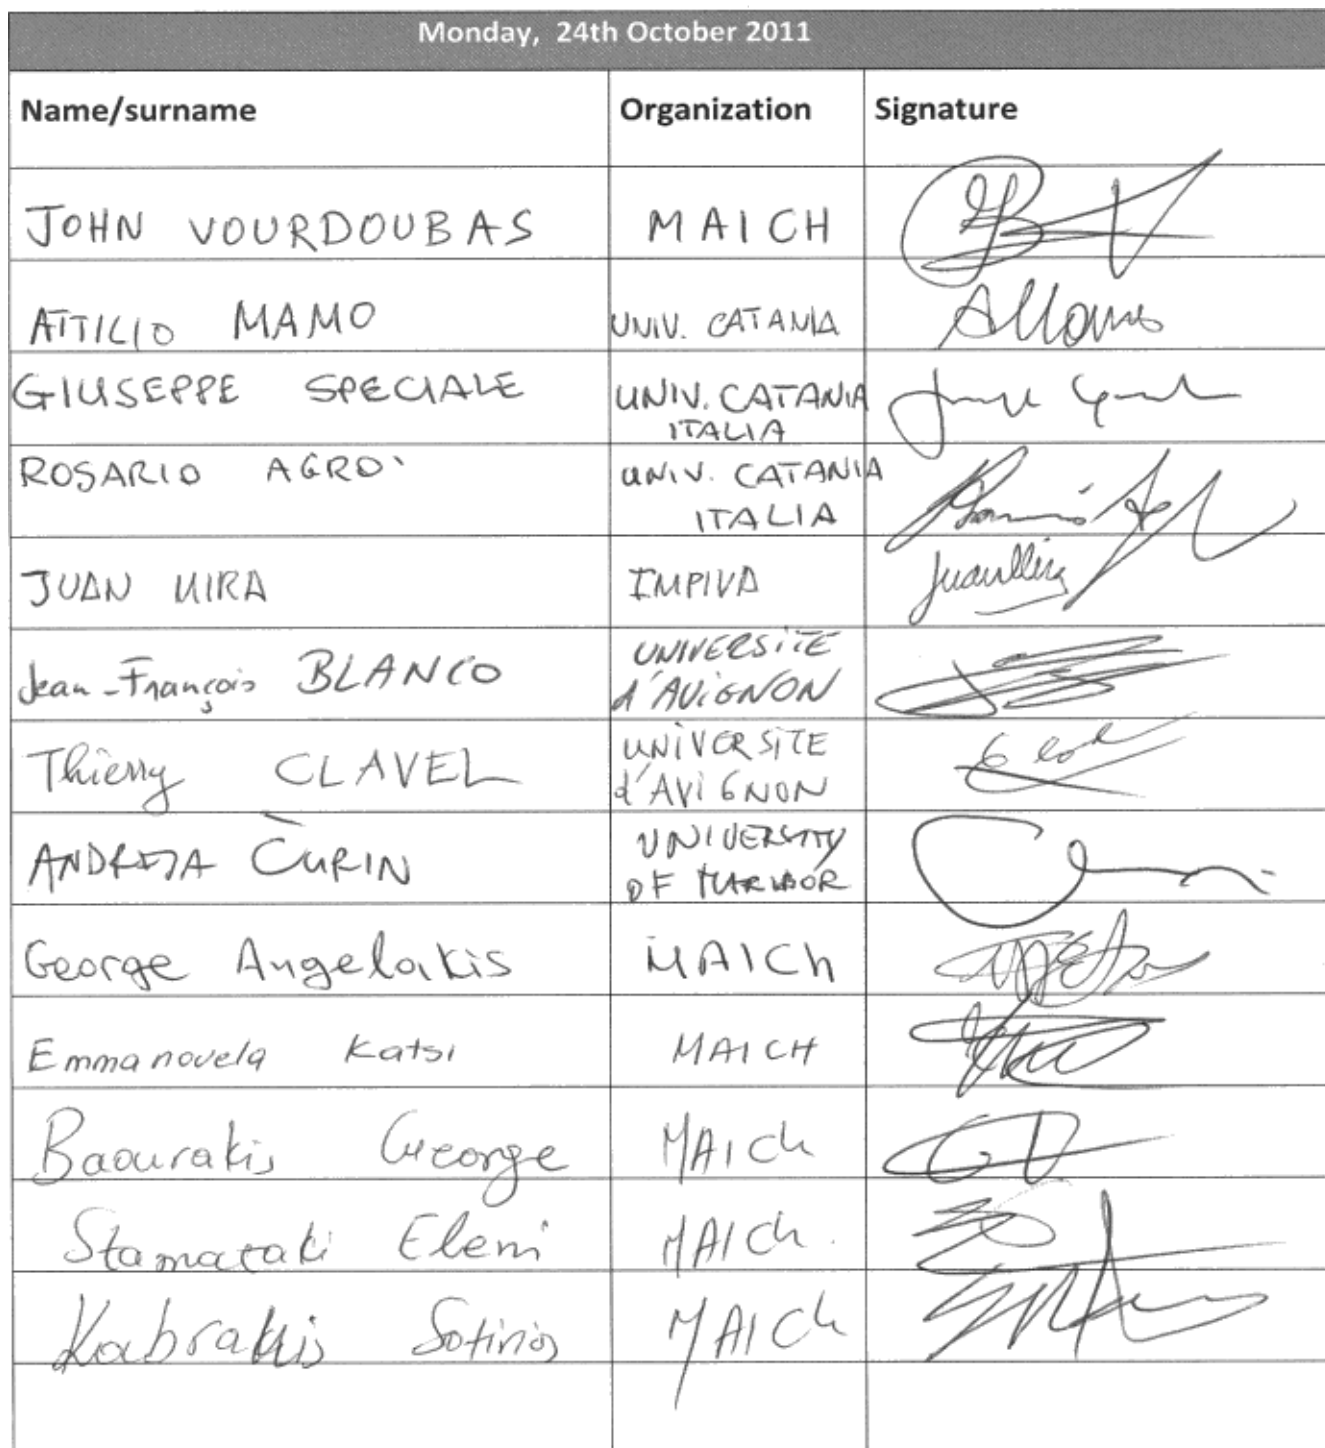 Monday, 24th October 2011
Name/surname Organization Signature
JOHN VOURDOUBAS MAICH
ATTILIO MAMO UNIV. CATANIA
GIUSEPPE SPECIALE UNIV. CATANIA
ITALIA
ROSARIO AGRO' UNIV. CATANIA
ITALIA
JUAN MIRA IMPIVA
Jean-François BLANCO UNIVERSITE
d'AViGNON
Thierry CLAVEL UNIVERSITE
d'AViGNON
ANDREJA ČURIN UNIVERSITY
OF MARIBOR
George Angelakis MAICh
Emmanouela Katsi MAICH
Baourakis George MAICh
Stamataki Eleni MAICh.
Kabrakis Sotirios MAICh